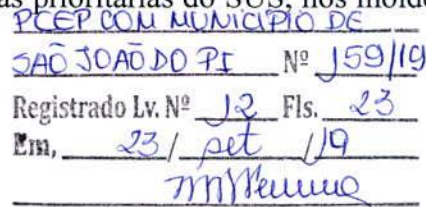 as prioritárias do SUS, nos molde
PCEP COM MUNICIPIO DE
SAÕ JOAÕ DO PI Nº 159/19
Registrado Lv. Nº 12 Fls. 23
Em, 23/ set /19